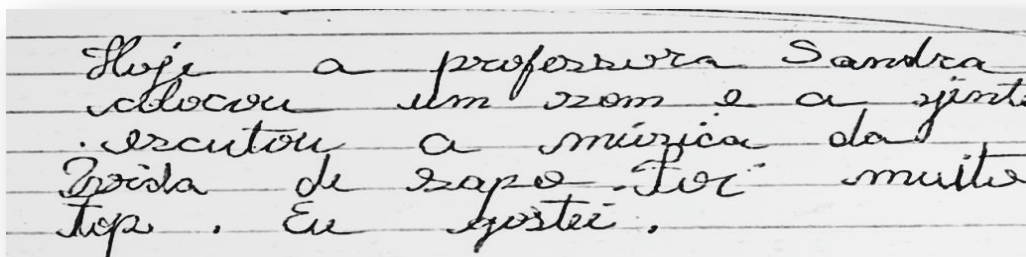 Hoje a professora Sandra
colocou um som e a jinti
escutou a múzica da
Zoida de sapo. Foi muito
top. Eu gostei.